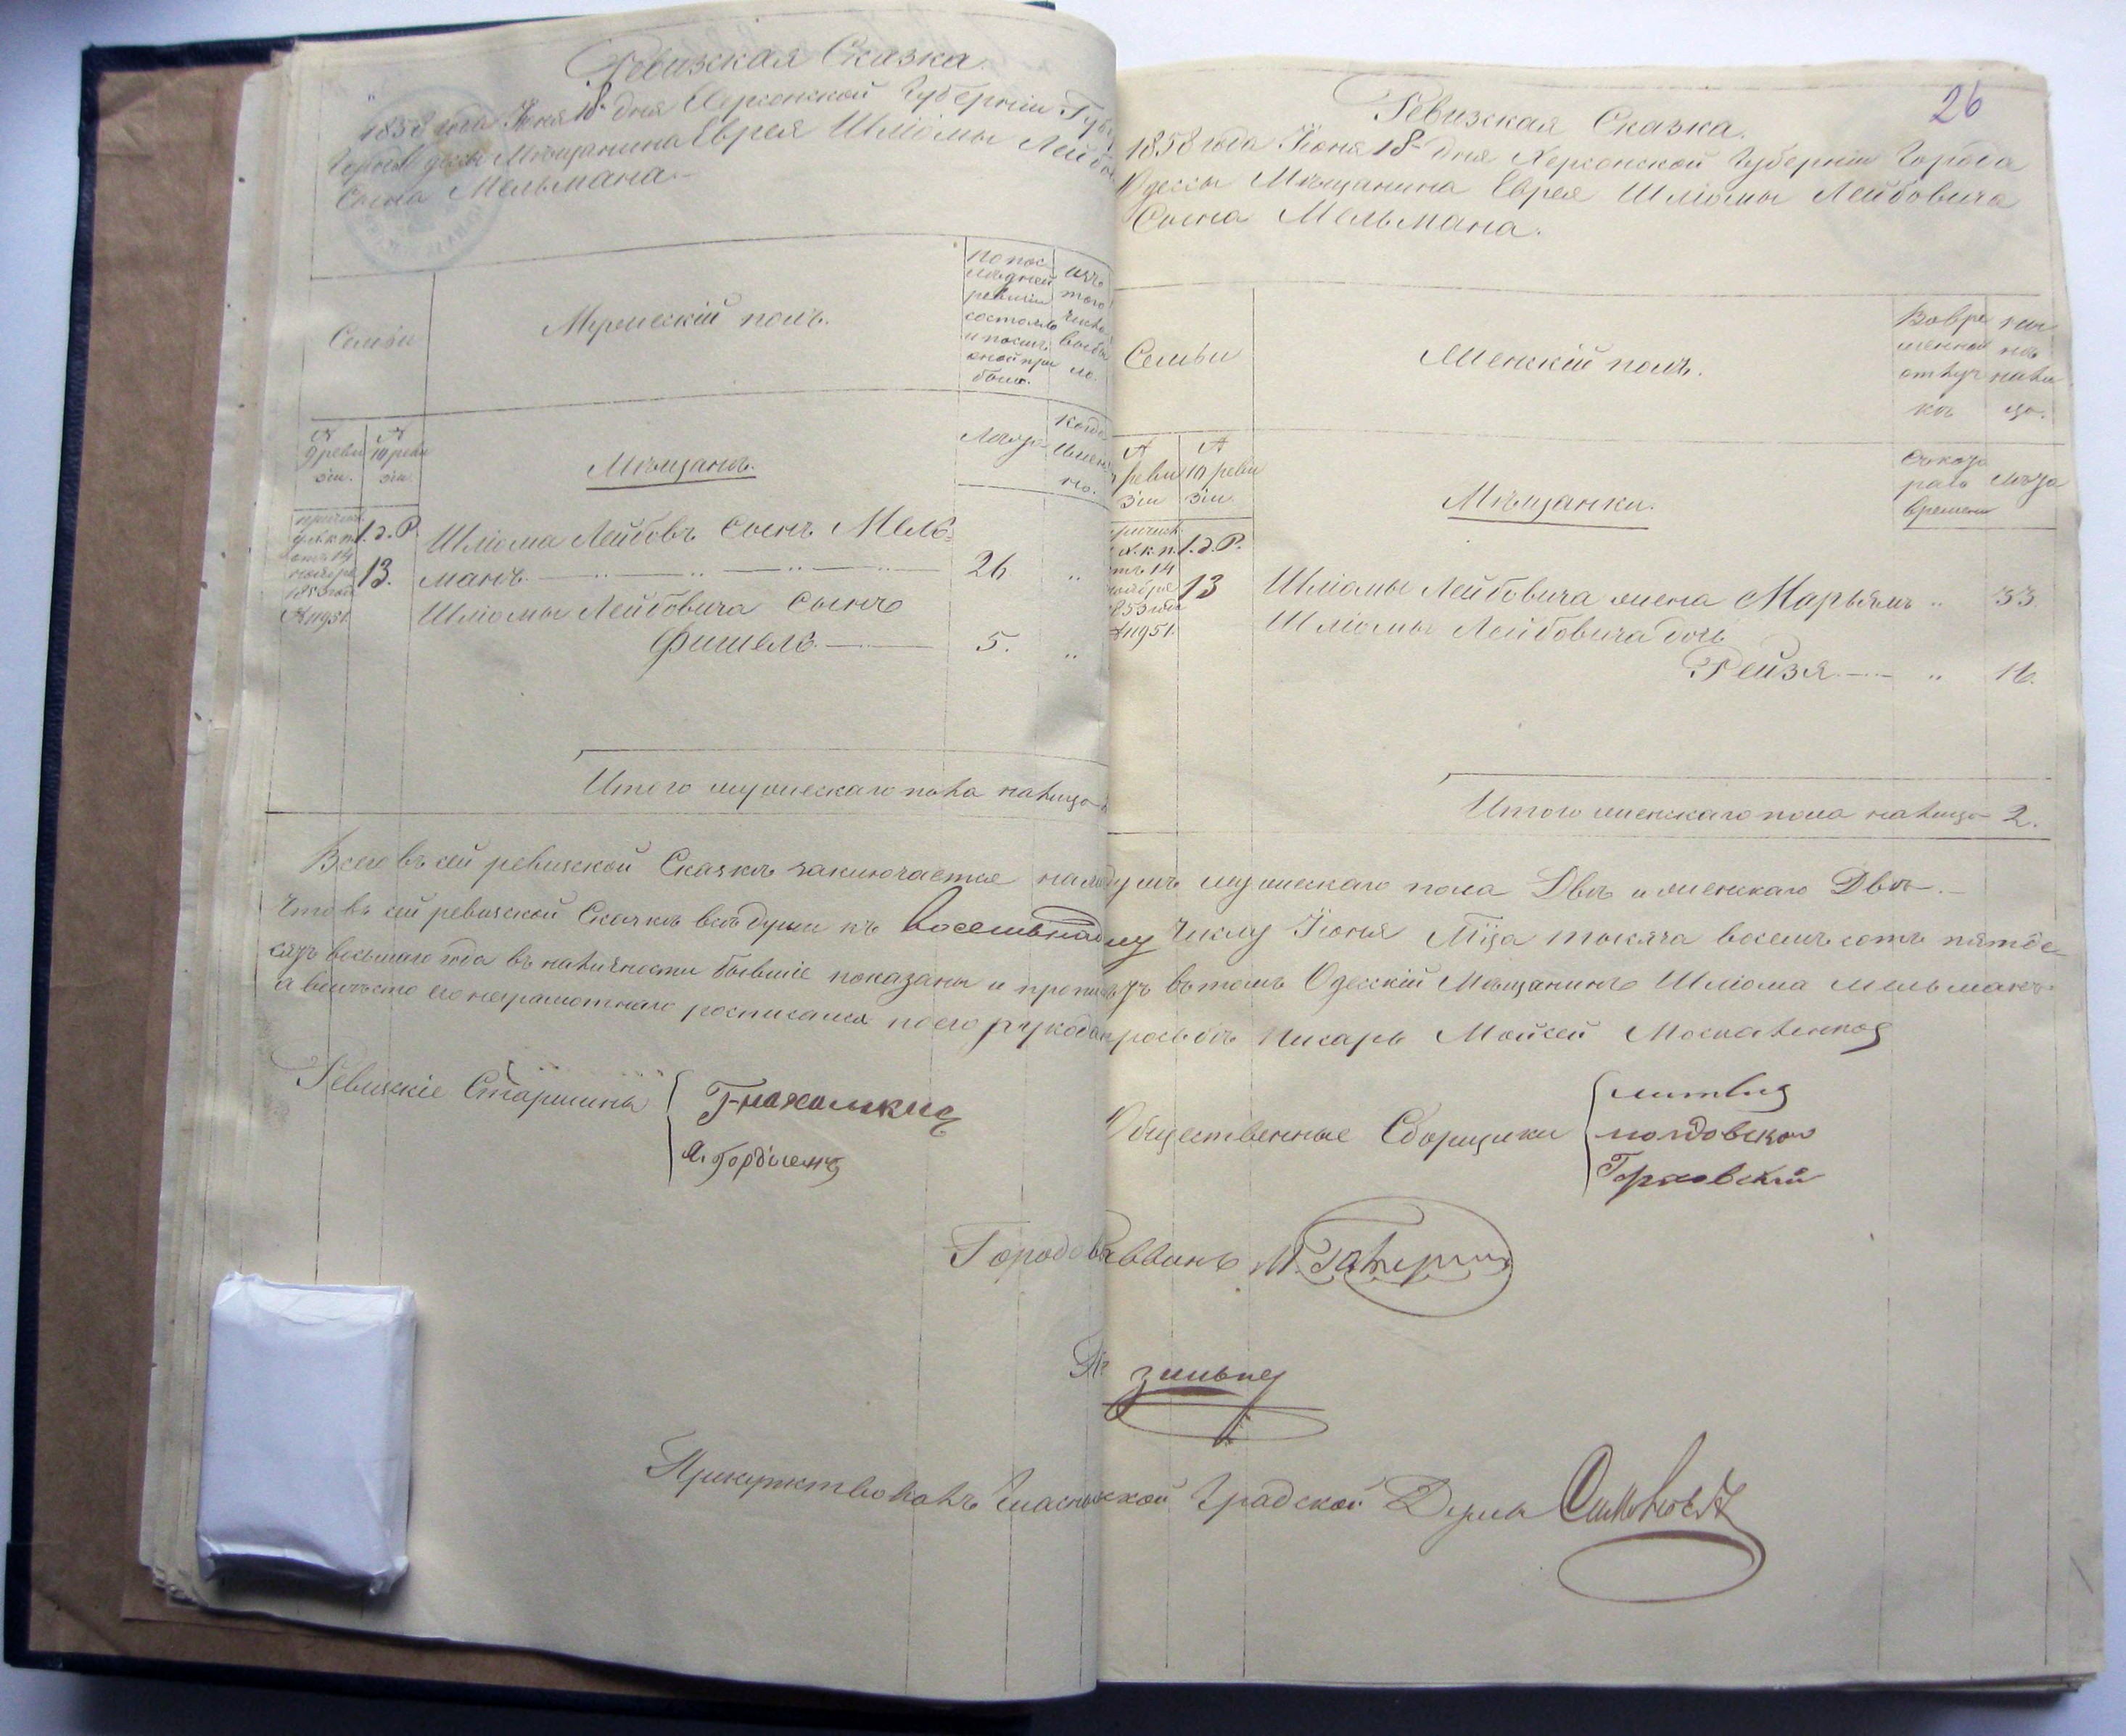 Ревизская Сказка.
1858 года Іюня 18 дня Херсонской Губерніи
Города Одессы Мѣщанина Еврея Шліомы Лейбов
Сына Мельмана.
Семьи
Мужескій полъ.
по пос
лѣдней
ревизіи
состояло
и послѣ
оной при
было.
изъ
того
числа
выбы
ло.
№
9 реви
зіи.
№
10 реви
зіи.
Мѣщане.
Лѣта
Когда
имен
но.
1. д. Р.
от 14
ноября
1853 года
№ 11951.
13.
Шліома Лейбовъ Сынъ Мель-
манъ 26 "
Шліомы Лейбовича Сынъ
Фишель 5. "
Итого мужескаго пола налицо
26
Ревизская Сказка.
1858 года Іюня 18 дня Херсонской Губерніи Города
Одессы Мѣщанина Еврея Шліомы Лейбовича
Сына Мельмана.
Семьи
Женскій полъ.
Во вре
менной
отлуч
кѣ
ны
нѣ
нали
цо.
№
реви
зіи
№
10 реви
зіи
Мѣщанки.
Съ кото
раго
времени
лѣта
1. д. Р.
от 14
ноября
1853 года
№ 11951.
13
Шліомы Лейбовича жена Марьямъ " 33
Шліомы Лейбовича дочь
Рейзя " 16.
Итого женскаго пола налицо 2.
Всего въ сей ревизской Сказкѣ заключается налицо душъ мужескаго пола Двѣ и женскаго Двѣ.
Что въ сей ревизской Сказкѣ всѣ души къ восемьнадцатому числу Іюня М-ца тысяча восемьсотъ пятде-
сятъ восьмаго года въ наличности бывшіе показаны и прописаны въ томъ Одесскій Мѣщанинъ Шліома Мельманъ
а вмѣсто его неграмотнаго росписался по его рукоданной просьбѣ Писарь Мойсей
Ревизскіе Старшины
Общественные Сборщики
Городовой Раввинъ
Присутствовалъ Гласный Одесской Градской Думы